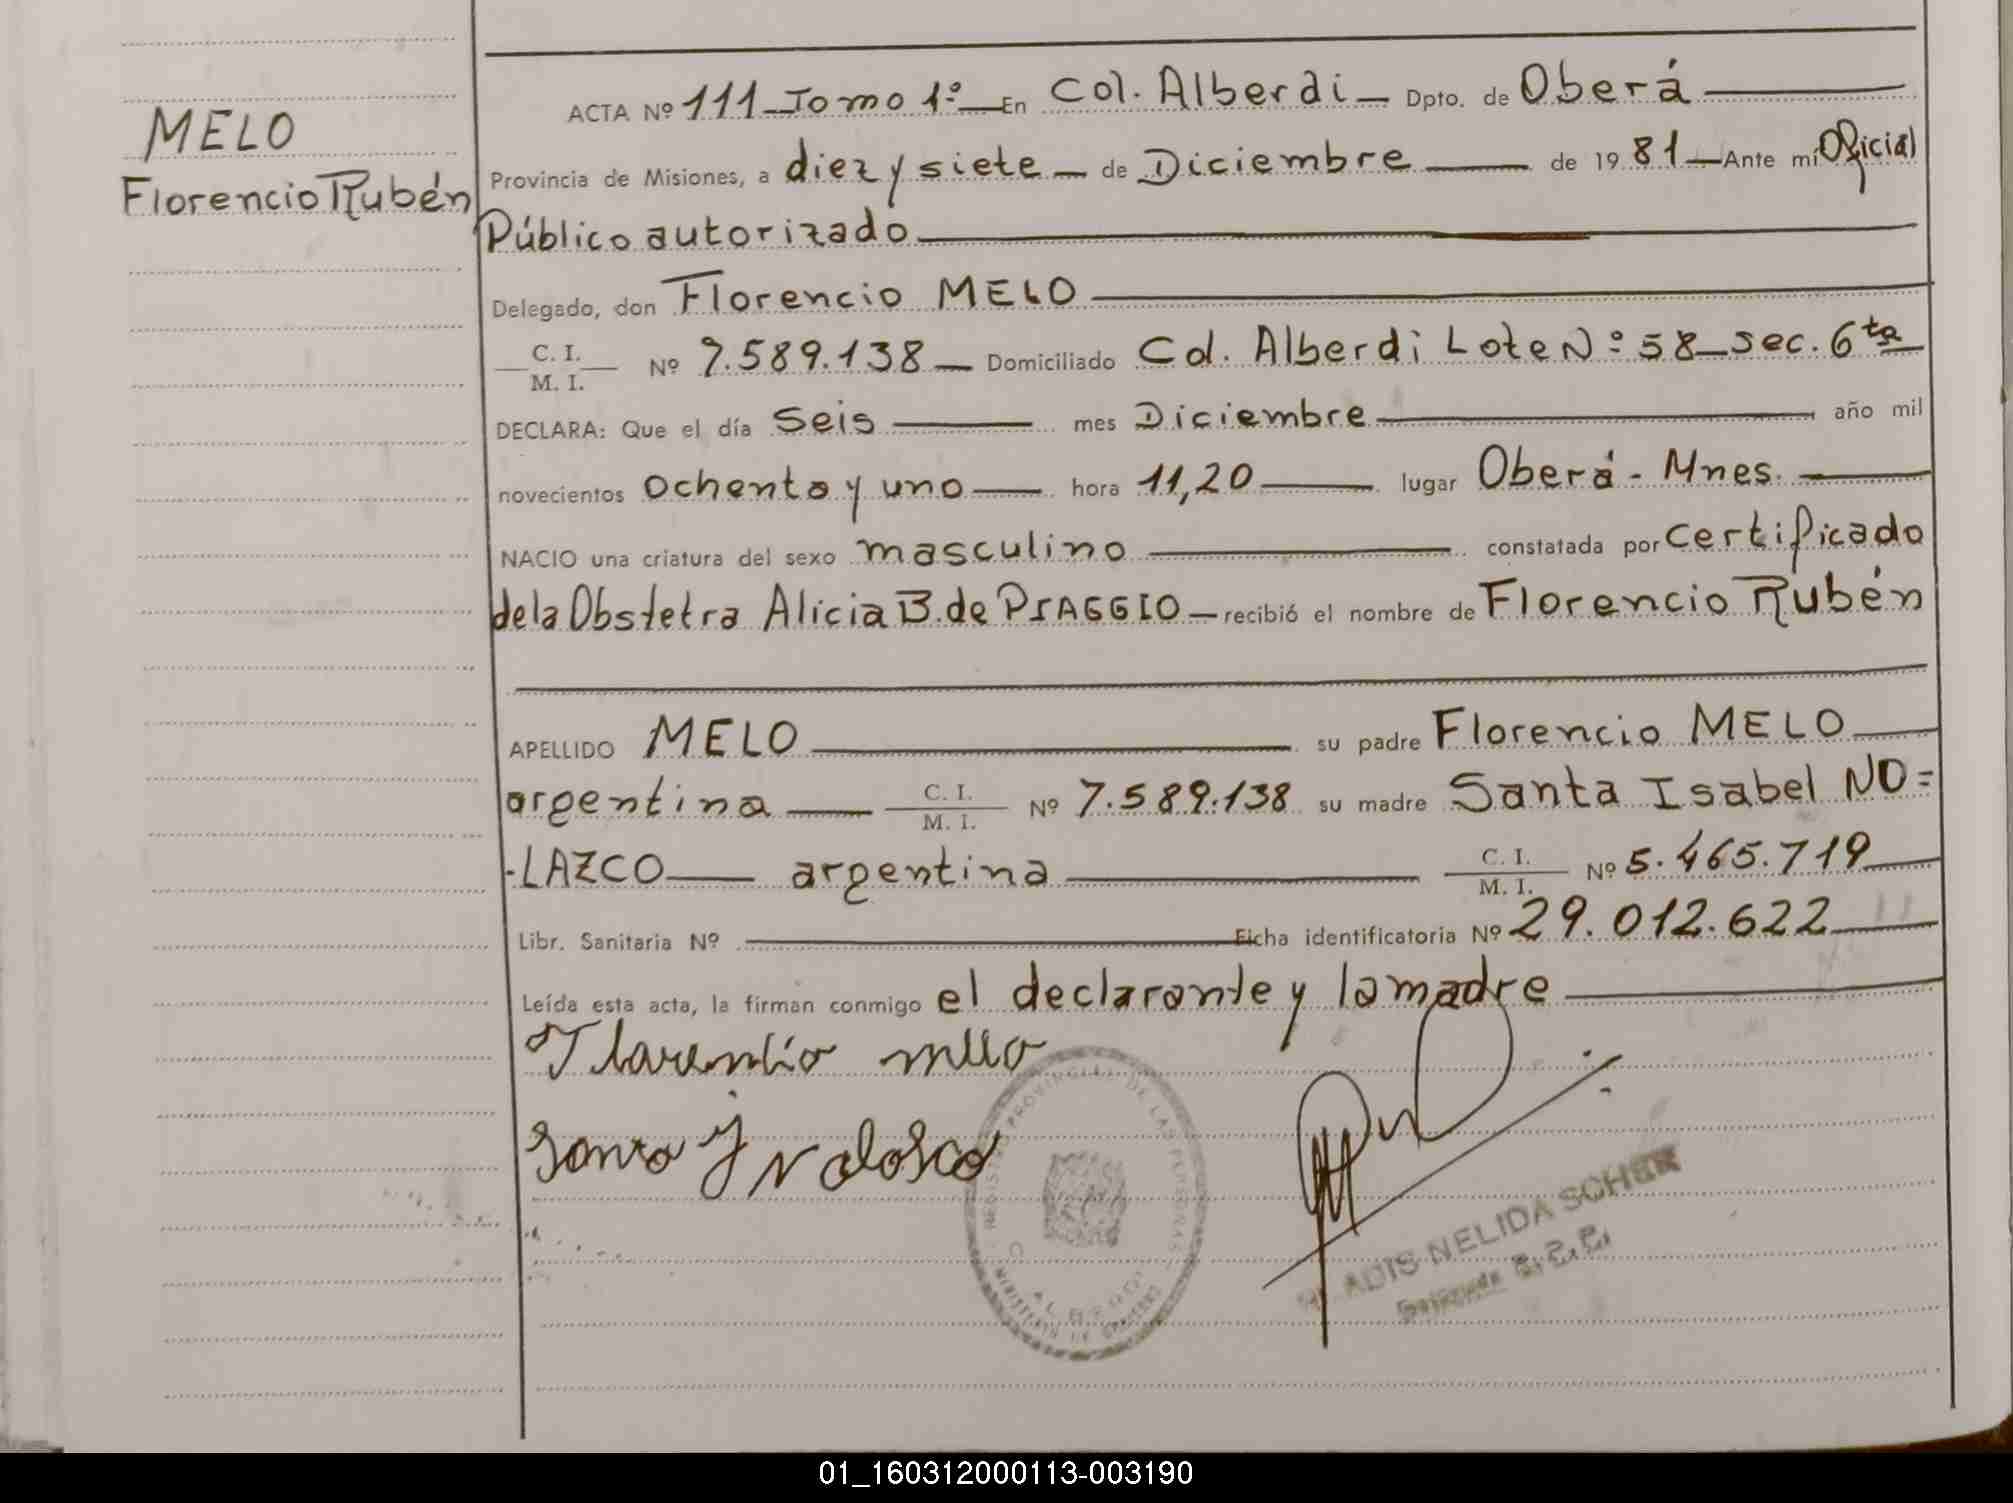 MELO
Florencio Rubén
ACTA Nº 111 Tomo 1º En Col. Alberdi Dpto. de Oberá
Provincia de Misiones, a diez y siete de Diciembre de 1981 Ante mi Oficial
Público autorizado
Delegado, don Florencio MELO
C. I.
M. I.
Nº 7.589.138 Domiciliado Col. Alberdi Lote Nº 58 sec. 6ta
DECLARA: Que el día Seis mes Diciembre año mil
novecientos ochenta y uno hora 11,20 lugar Oberá - Mnes.
NACIO una criatura del sexo masculino constatada por Certificado
de la Obstetra Alicia B. de PIAGGIO recibió el nombre de Florencio Rubén
APELLIDO MELO su padre Florencio MELO
argentina C. I. Nº 7.589.138 su madre Santa Isabel NO=
M. I.
-LAZCO argentina C. I. Nº 5.465.719
M. I.
Libr. Sanitaria Nº Ficha identificatoria Nº 29.012.622
Leída esta acta, la firman conmigo el declarante y la madre
Florencio Melo
Santa I Nolasco
REGISTRO PROVINCIAL DE LAS PERSONAS
ALBERDI
MINISTERIO DE GOBIERNO
ADIS NELIDA SCHER
01_160312000113-003190